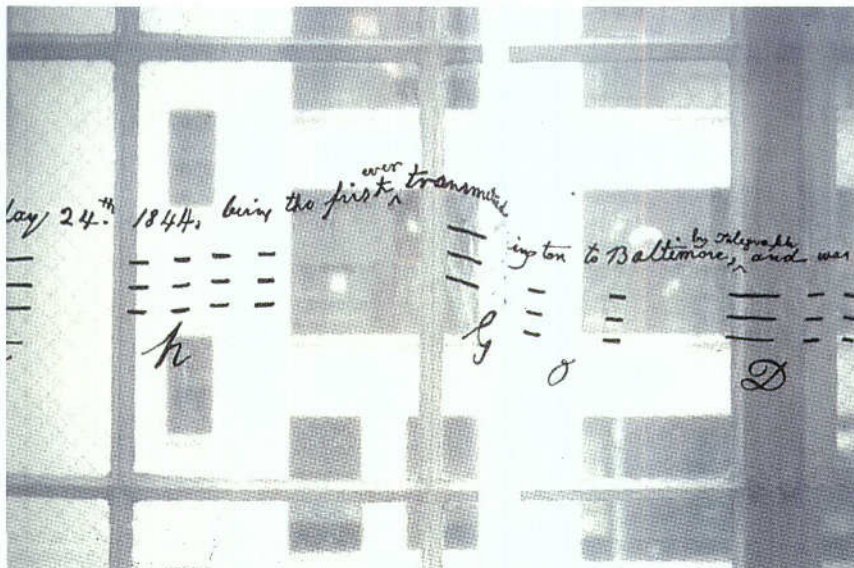 day 24.th 1844, being the first ever transmitted
ington to Baltimore, by Telegraph, and was
h G o D